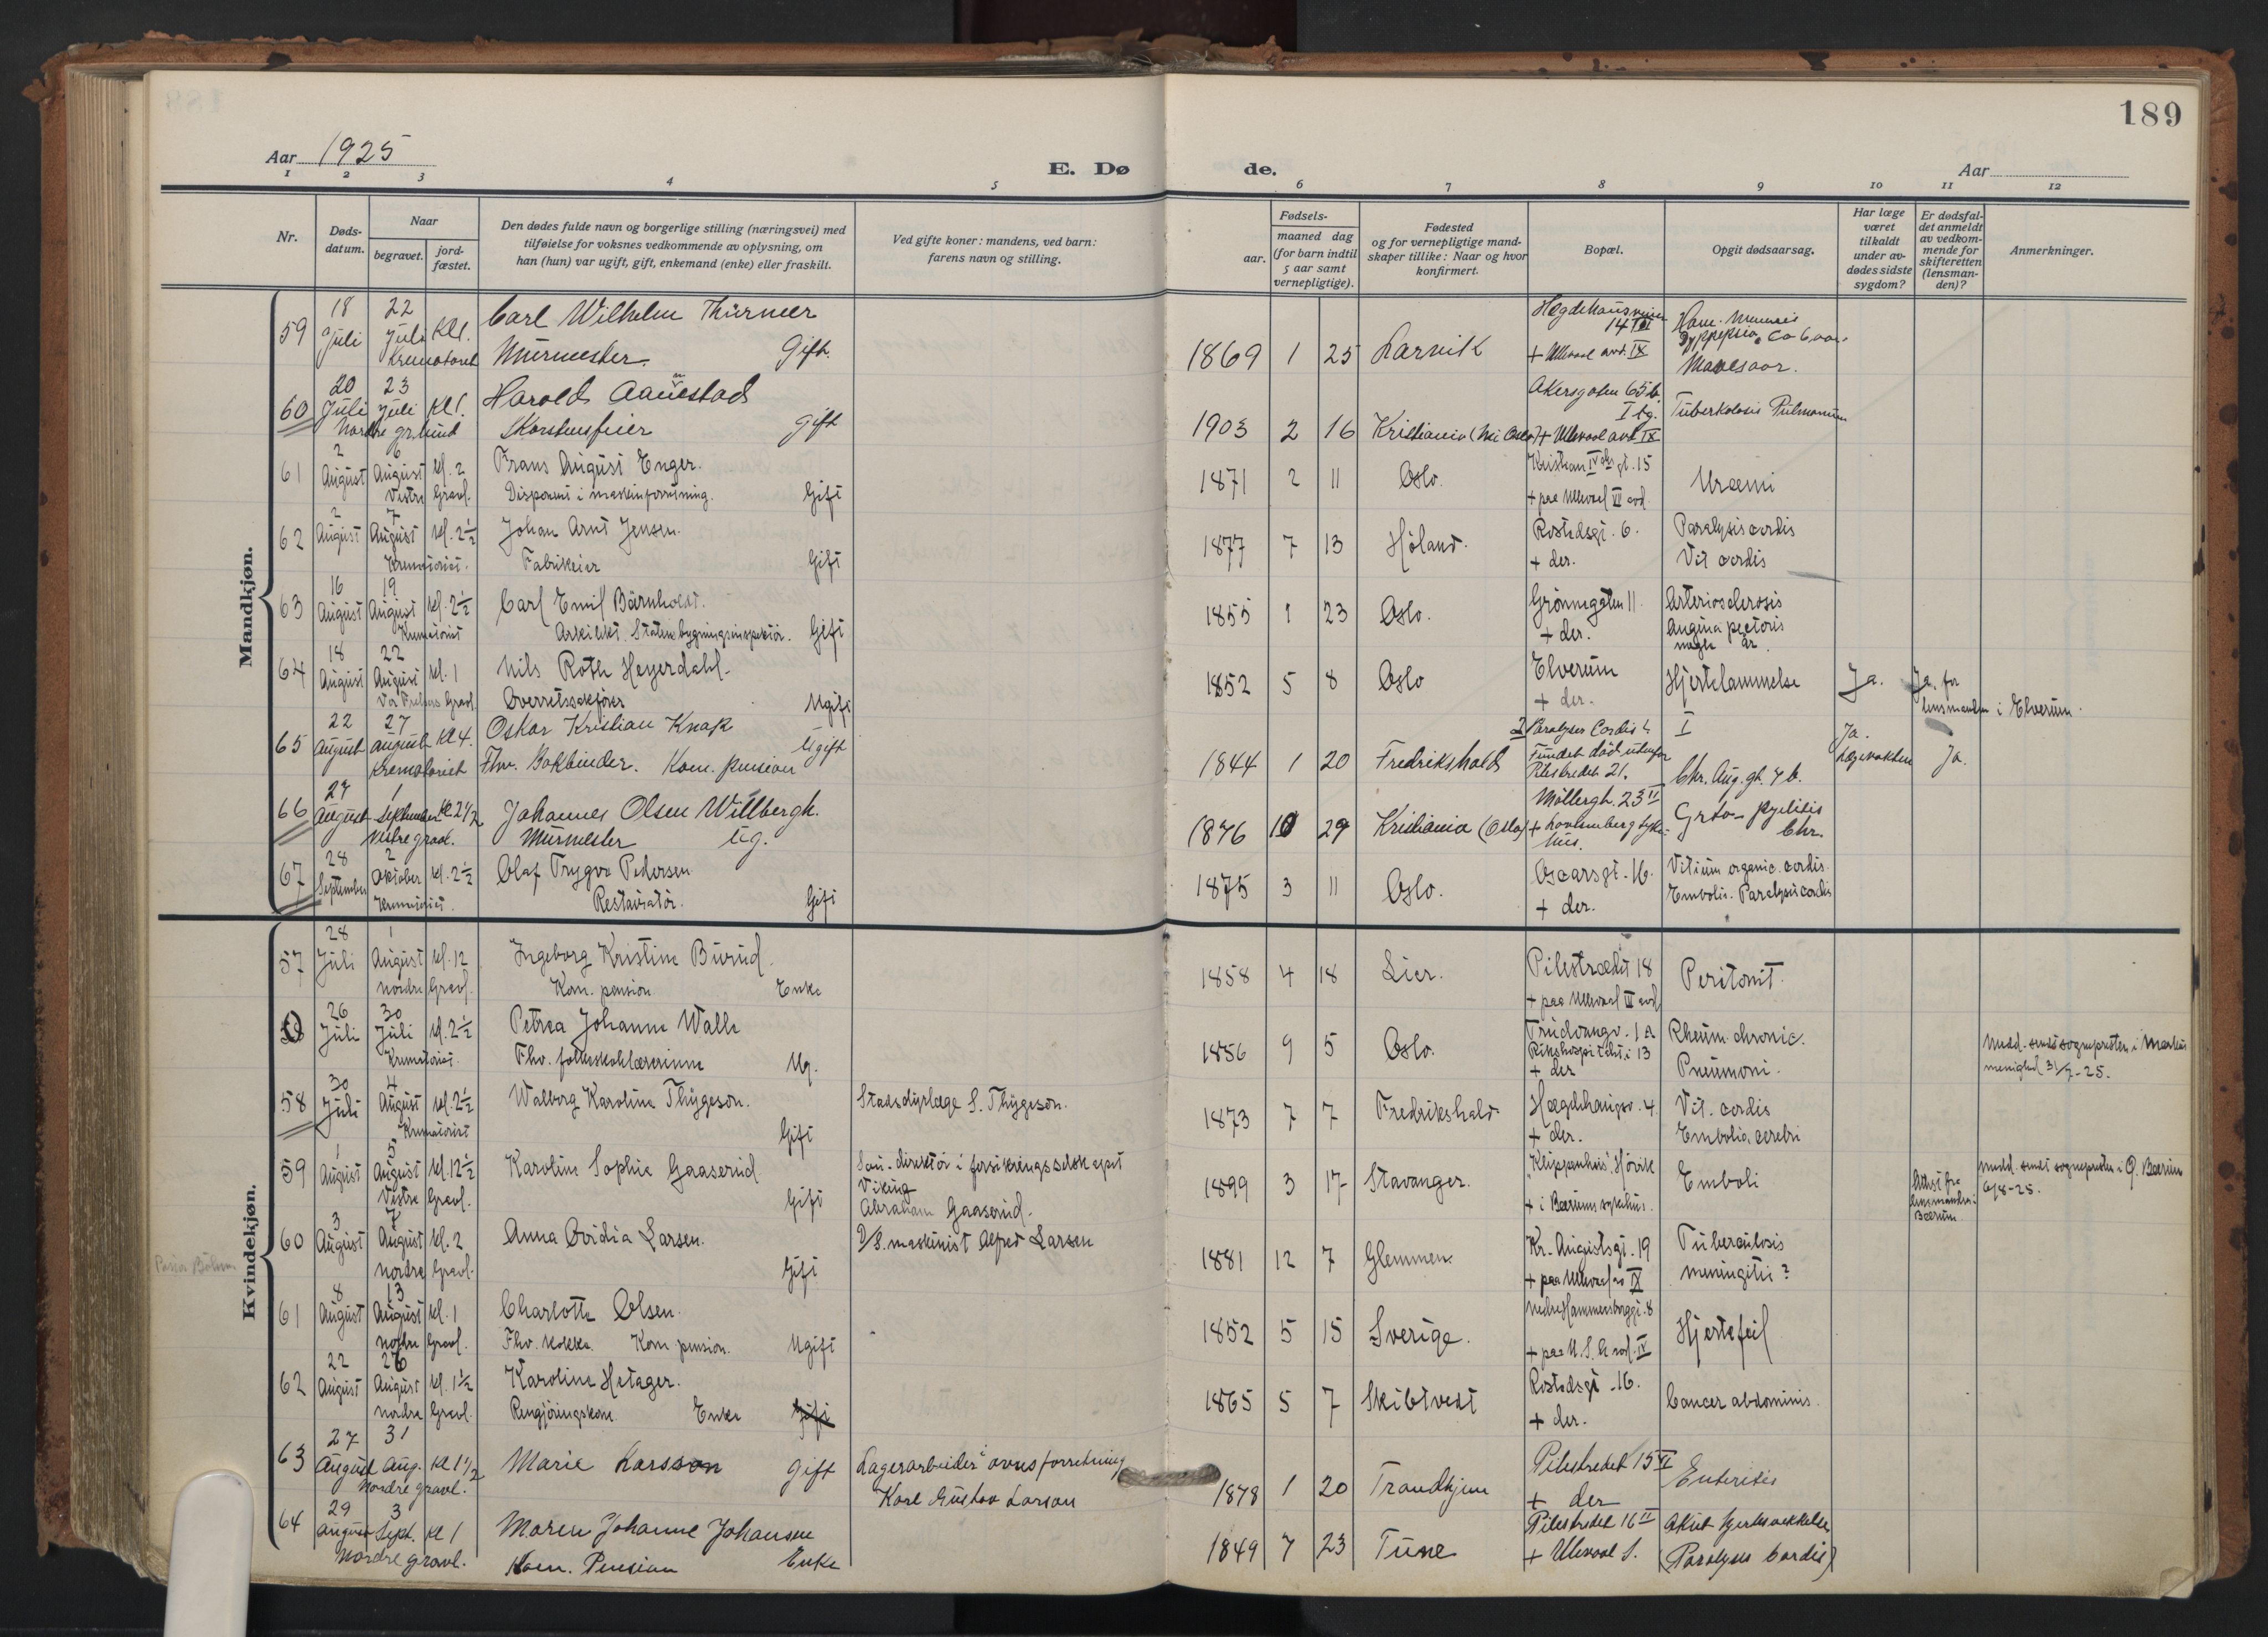 189
Aar 1925
E. Dø de.
Aar
1 2 3 4 5 6 7 8 9 10 11 12
Nr.
Døds-
datum.
Naar
begravet.
jord-
fæstet.
Den dødes fulde navn og borgerlige stilling (næringsvei) med
tilføielse for voksnes vedkommende av oplysning, om
han (hun) var ugift, gift, enkemand (enke) eller fraskilt.
Ved gifte koner: mandens, ved barn:
farens navn og stilling.
Fødsels-
aar. maaned dag
(for barn indtil
5 aar samt
vernepligtige).
Fødested
og for vernepligtige mand-
skaper tillike: Naar og hvor
konfirmert.
Bopæl.
Opgit dødsaarsag.
Har læge
været
tilkaldt
under av-
dødes sidste
sygdom?
Er dødsfal-
det anmeldt
av vedkom-
mende for
skifteretten
(lensman-
den)?
Anmerkninger.
Mandkjøn.
59 18 Juli 22 Juli Kl 1. Carl Wilhelm Thürmer
Krematoriet Murmester. Gift.
1869 1 25 Larvik
14 III
+ Ullevaal avd. IX
Dyppepsia ca 6 aar.
Mavesaar.
60 20 Juli 23 Juli Kl 1. Harald Aanestad
Nordre gr.lund Skorstensfeier Gift
1903 2 16 Kristiania (nu Oslo)
Akersgaten 65 b.
I bg.
+ Ullevaal avd IX
Tuberkolosis Pulmonum
61 2 August 6 August kl. 2 Frans August Enger.
Vestre Gravl. Disponent i maskinforretning. Gift
1871 2 11 Oslo.
Kristian IV des gt. 15
+ paa Ullevaal VII avd.
Uræmi
62 2 August 7 August kl. 2½ Johan Arnt Jensen.
Krematoriet. Fabrikeier Gift
1877 7 13 Høland.
Rostedsgt. 6.
+ der.
Paralysis cordis
Vit cordis
63 16 August 19 August kl. 2½ Carl Emil Bärnholdt.
Krematoriet Arkitekt. Statens bygningsinspektør. Gift
1855 1 23 Oslo.
Grönnegaten 11.
+ der.
Arteriosclerosis
Angina pectoris
nogle år.
64 18 August 22 August kl. 1 Nils Roth Heyerdahl.
Vor Frelsers Gravl. Overretssakfører Ugift
1852 5 8 Oslo
Elverum
+ der.
Hjertelammelse
Ja.
Ja, for
lensmanden i Elverum.
65 22 August 27 August Kl 4. Oskar Kristian Knap
Krematoriet Fhv. Bokbinder. Kom. pension Ugift
1844 1 20 Fredrikshald
2 Paralyser Cordis
Fundet död utenfor
Pilestredet 21.
I
Chr. Aug. gt. 7 b.
Ja.
Lægevakten
Ja.
66 27 August 1 September Kl 2 1/2 Johannes Olsen Willbergh.
Vestre gravl. Murmester Ug.
1876 10 29 Kristiania (Oslo)
Möllergt. 23 II
+ Lovisenberg syke-
hus.
Cysto-pyelitis
Chr.
67 28 September 2 Oktober kl. 2½ Olaf Trygve Pedersen.
Krematoriet. Restauratør. Gift
1875 3 11 Oslo.
Oscarsgt. 16.
+ der.
Vitium organic. cordis.
Emboli. Paralysis cordis
Kvindekjøn.
57 28 Juli 1 August kl. 12 Ingeborg Kristine Burud.
Nordre Gravl. Kom. pension Enke
1858 4 18 Lier.
Pilestrædet 18
+ paa Ullevaal III avd.
Peritonit.
0 26 Juli 30 Juli kl. 2½ Petrea Johanne Walle
Krematoriet. Fhv. folkeskolelærerinne Ug.
1856 9 5 Oslo.
Trudvangv. 1 a
Rikshospitalet i 13
+ der
Rheum. chronic.
Pneumoni.
Medd. sendt sognepresten i Markus
menighed 31/7-25.
58 30 Juli 4 August kl. 2½ Walborg Karoline Thygeson.
Krematoriet Gift
Stadsdyrlæge S. Thygeson.
1873 7 7 Fredrikshald
Hægdehaugsv. 4
+ der.
Vit. cordis
Embolia cerebri
59 1 August 5 August kl. 12½ Karoline Sophie Gaaserud
Vestre Gravl. Gift
Sou-direktör i forsikringsselskapet
Viking
Abraham Gaaserud.
1899 3 17 Stavanger.
"Klippenhus", Hövik
+ i Bærums sykehus.
Emboli
Attest fra
lensmanden i
Bærum.
Medd. sendt sognepresten i Ø. Bærum
6/8-25.
60 3 August 7 August kl. 2 Anna Ovidia Larsen.
Nordre Gravl. Gift
D/S. maskinist Alfred Larsen
1881 12 7 Glemmen.
Kr. Augustsgt. 19
+ paa Ullevaal IX
Tuberculosis
meningitis?
61 8 August 13 August kl. 1 Charlotte Olsen.
Nordre Gravl. Fhv. kokke. Kom pension. Ugift
1852 5 15 Sverige.
Nedre Hammersborggt. 8
+ paa U. S. avd. IV
Hjertefeil
62 22 August 26 August kl. 1½ Karoline Hetager.
Nordre Gravl. Rengjøringskone Enke Gift
1865 5 7 Skibtvedt
Rostedsgt. 16.
+ der.
Cancer abdominis.
63 27 August 31 Aug. kl 1 1/2 Marie Karsson Gift
Nordre gravl.
Lagerarbeider i ovnsforretning
Karl Gustav Larson
1878 1 20 Trondhjem
Pilestredet 15 II
+ der
Enteritis
64 29 August 3 Sept. kl 1 Maren Johanne Johansen
Nordre gravl. Kom. Pension Enke
1849 7 23 Tune
Pilestredet 16 II
+ Ullevaal S.
Akut hjertesvækkelse
(Paralysis Cordis)